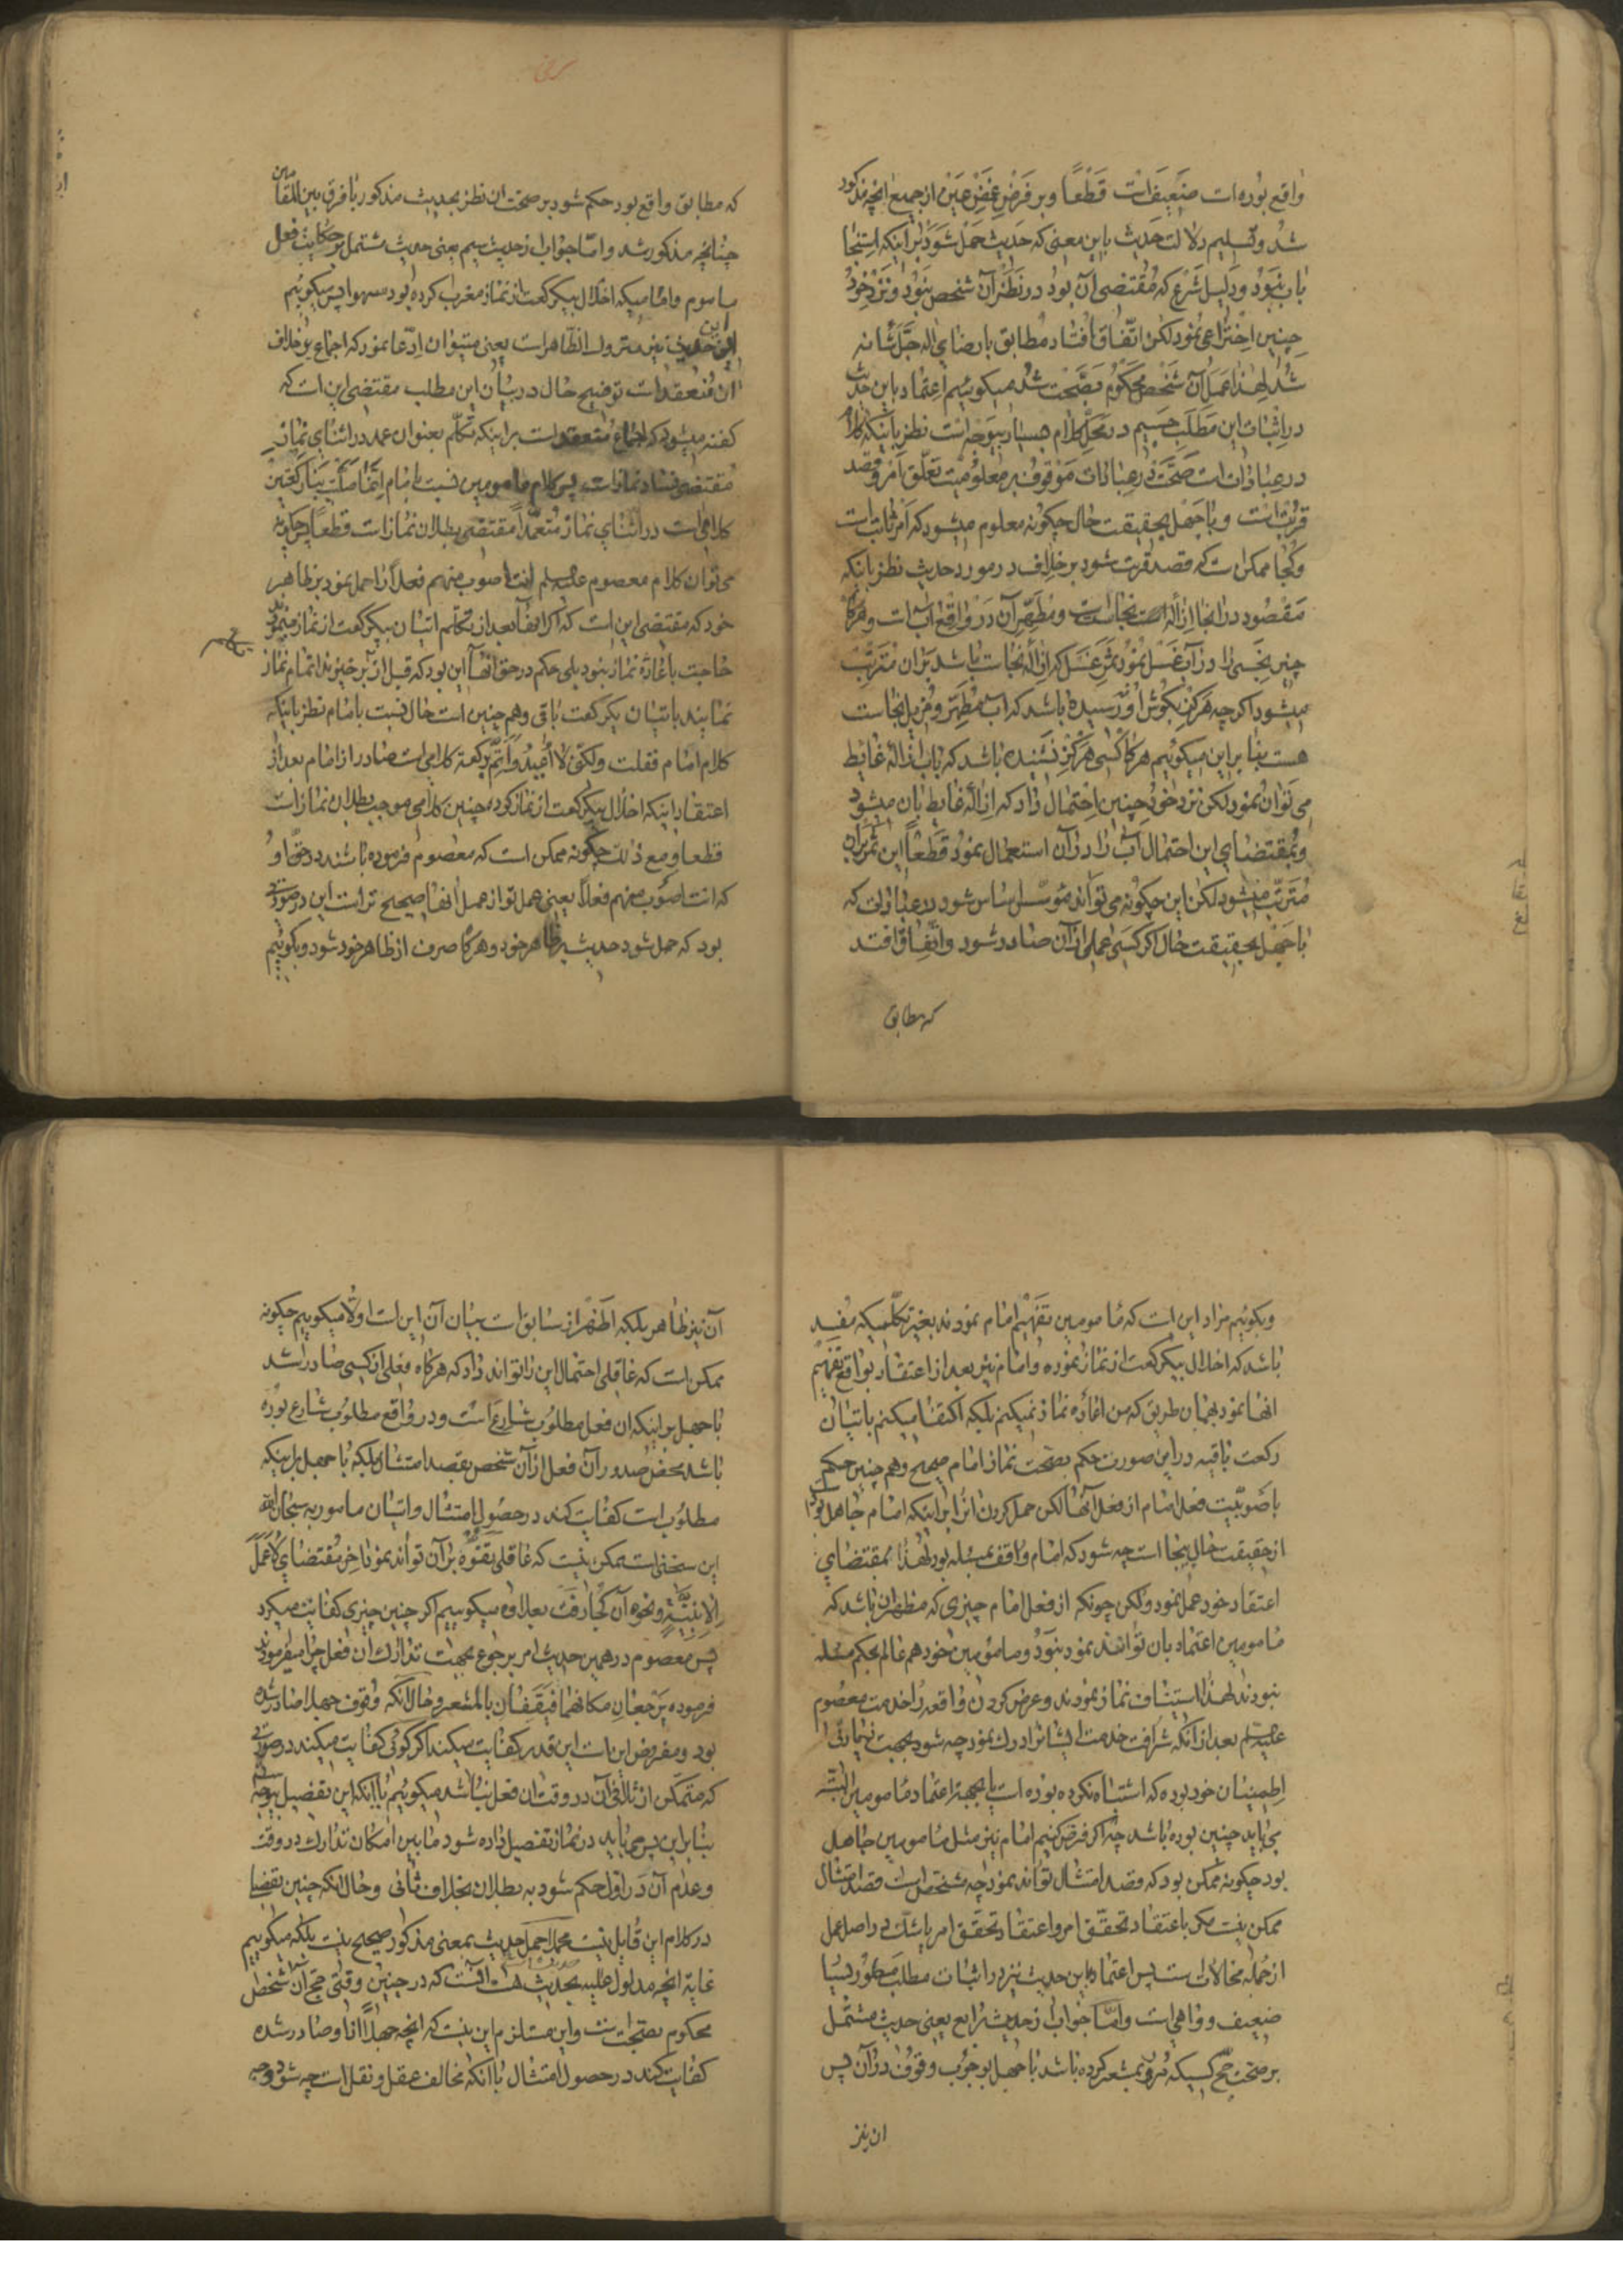 واقع بوده است ضعیف است قطعًا و بر فرض غض عین از جمیع انچه مذکور
شد و تسلیم دلالت حدیث باین معنی که حدیث حمل شود بر اینکه استنجا
باب نبود و دلیل شرع که مقتضی آن بود در نظر آن شخص نبود و نزد خود
چنین اختراعی نمود لکن اتفاق افتاد مطابق با رضای اله جل شانه
شد لهذا عمل آن شخص محکوم بصحت شد میکوییم اعتماد باین حدیث
در اثبات این مطلب جسیم در محل کلام بسیار بیوجه است نظر باینکه کلام
در عبادات است صحت در عبادات موقوف بر معلومیت تعلق امر و قصد
قربت است و با جهل بحقیقت حال چکونه معلوم میشود که امر ثابت است
و کجا ممکن است که قصد قربت شود بر خلاف در مورد حدیث نظر بانکه
مقصود در انجا ازاله نجاست است و مطهر آن در واقع اب است و هرکاه
چیز نجسی را در آب غسل نمود ثمر غسل که ازاله نجاست باشد بر ان مترتب
میشود اکرچه هرکز بکوش او نرسیده باشد که اب مطهر و مزیل نجاست
هست بنا بر این میکوییم هرکاه کسی هرکز نشنیده باشد که باب ازاله غایط
می توان نمود لکن نزد خود چنین احتمال داد که ازاله غایط بان میشود
و بمقتضای این احتمال اب را در آن استعمال نمود قطعًا این ثمر بر ان
مترتب میشود لکن این چکونه می تواند مؤسس اساس شود در عبادات که
با جهل بحقیقت حال اکر کسی عملی از آن صادر شود و اتفاق افتد
که مطابق
که مطابق واقع بود حکم شود بر صحت ان نظر بحدیث مذکور با فرق بین المقامین
چنانچه مذکور شد و امّا جواب از حدیث سیم یعنی حدیث مشتمل بر حکایت فعل
ماموم و امامیکه اخلال بیکرکعت از نماز مغرب کرده بود سهوا پس میکوییم
این حدیث نیز متروک الظاهر است یعنی میتوان ادعا نمود که اجماع بر خلاف
ان منعقد است توضیح حال در بیان این مطلب مقتضی این است که
کفته میشود که اجماع منعقد است بر اینکه تکلم بعنوان عمد در اثنای نماز
مقتضی فساد نماز است پس کلام مامومین نسبت بامام انما صلیت بنا رکعتین
کلامی است در اثنای نماز متعمدًا مقتضی بطلان نماز است قطعًا پس چکونه
می توان کلام معصوم علیه السلم انت اصوب منهم فعلًا را حمل نمود بر ظاهر
خود که مقتضی این است که اکر انها بعد از تکلم اتیان بیکرکعت از نماز مینمودند
حاجت باعاده نماز نبود بلی حکم در حق انها این بود که قبل از برخیزند اتمام نماز
نمایند باتیان یکرکعت باقی و هم چنین است حال نسبت بامام نظر باینکه
کلام امام فقلت و لکنی لا اعید و اتم برکعة کلامی است صادر از امام بعد از
اعتقاد اینکه اخلال بیکرکعت از نماز کرده چنین کلامی موجب بطلان نماز است
قطعا و مع ذلک چکونه ممکن است که معصوم فرموده باشند در حق او
که انت اصوب منهم فعلًا یعنی عمل تو از عمل انها صحیح تر است این در صورتی
بود که حمل شود حدیث بر ظاهر خود و هرکاه صرف از ظاهر خود شود و بکوییم
و بکوییم مراد این است که مامومین تفهیم امام نمودند بغیر تکلمیکه مفسد
باشد که اخلال بیکرکعت از نماز نموده و امام نیز بعد از اعتقاد بواقع تفهیم
انها نمود بهمان طریق که من اعاده نماز نمیکنم بلکه اکتفا میکنم باتیان
رکعت باقیه در این صورت حکم بصحت نماز امام صحیح و هم چنین حکم
باصوبیت فعل امام از فعل آنها لکن حمل کردن انرا بر اینکه امام جاهل بود
از حقیقت حال بیجا است چه شود که امام واقف بمسئله بود لهذا بمقتضای
اعتقاد خود عمل نمود و لکن چونکه از فعل امام چیزی که مظهر ان باشد که
مامومین اعتماد بان توانند نمود نبود و مامومین خود هم عالم بحکم مسئله
نبودند لهذا استیناف نماز نمودند و عرض کردن واقعه را خدمت معصوم
علیه السلم بعد از آنکه شرافت خدمت ایشانرا درک نمود چه شود بجهت زیادتی
اطمینان خود بوده که اشتباه نکرده بوده است یا بجهة اعتماد مامومین البته
می باید چنین بوده باشد چه اکر فرض کنیم امام نیز مثل مامومین جاهل
بود چکونه ممکن بود که قصد امتثال تواند نمود چه مشخص است قصد امتثال
ممکن نیست مکر باعتقاد تحقق امر و اعتقاد تحقق امر با شک در اصل عمل
از جمله محالات است پس اعتماد باین حدیث نیز در اثبات مطلب مسطور بسیار
ضعیف و واهی است و امّا جواب از حدیث رابع یعنی حدیث مشتمل
بر صحت حج کسیکه مرور بمشعر کرده باشد با جهل بوجوب وقوف در آن پس
ان نیز
آن نیز ظاهر بلکه اظهر از سابق است بیان آن این است اولًا میکوییم چکونه
ممکن است که عاقلی احتمال این را تواند داد که هرکاه فعلی از کسی صادر شد
با جهل بر اینکه ان فعل مطلوب شارع است و در واقع مطلوب شارع بوده
باشد محض صدور آن فعل از آن شخص بقصد امتثال بلکه با جهل بر اینکه
مطلوب است کفایت کند در حصول امتثال و اتیان مامور به سبحان الله
این سخنی است ممکن نیست که عاقلی تفوه بر آن تواند نمود تا خر مقتضای لا عمل
الا بنیة و نحوه آن کجا رفت بعلاوه میکوییم اکر چنین چیزی کفایت میکرد
پس معصوم در همین حدیث امر برجوع بجهت تدارک ان فعل چرا میفرمودند
فرموده یرجعان مکانهما فیقفان بالمشعر و حال آنکه وقوف جهلا صادر شده
بود و مفروض این است این قدر کفایت میکند اکر کوئی کفایت میکند در صورتی
که متمکن از تلافی آن در وقت ان فعل نباشد میکوییم با انکه این تفصیل بیوجه است
بنا بر این پس می باید در نماز تفصیل داده شود مابین امکان تدارک در وقت
و عدم آن در اول حکم شود به بطلان بخلاف ثانی و حال انکه چنین تفصیل
در کلام این قایل نیست مجملا حمل حدیث بمعنی مذکور صحیح نیست بلکه میکوییم
غایة انچه مدلول علیه بحدیث است انست که در چنین وقتی حج آن شخص
محکوم بصحت است و این مستلزم این نیست که انچه جهلًا از او صادر شده
کفایت کند در حصول امتثال با انکه مخالف عقل و نقل است چه شود وجه